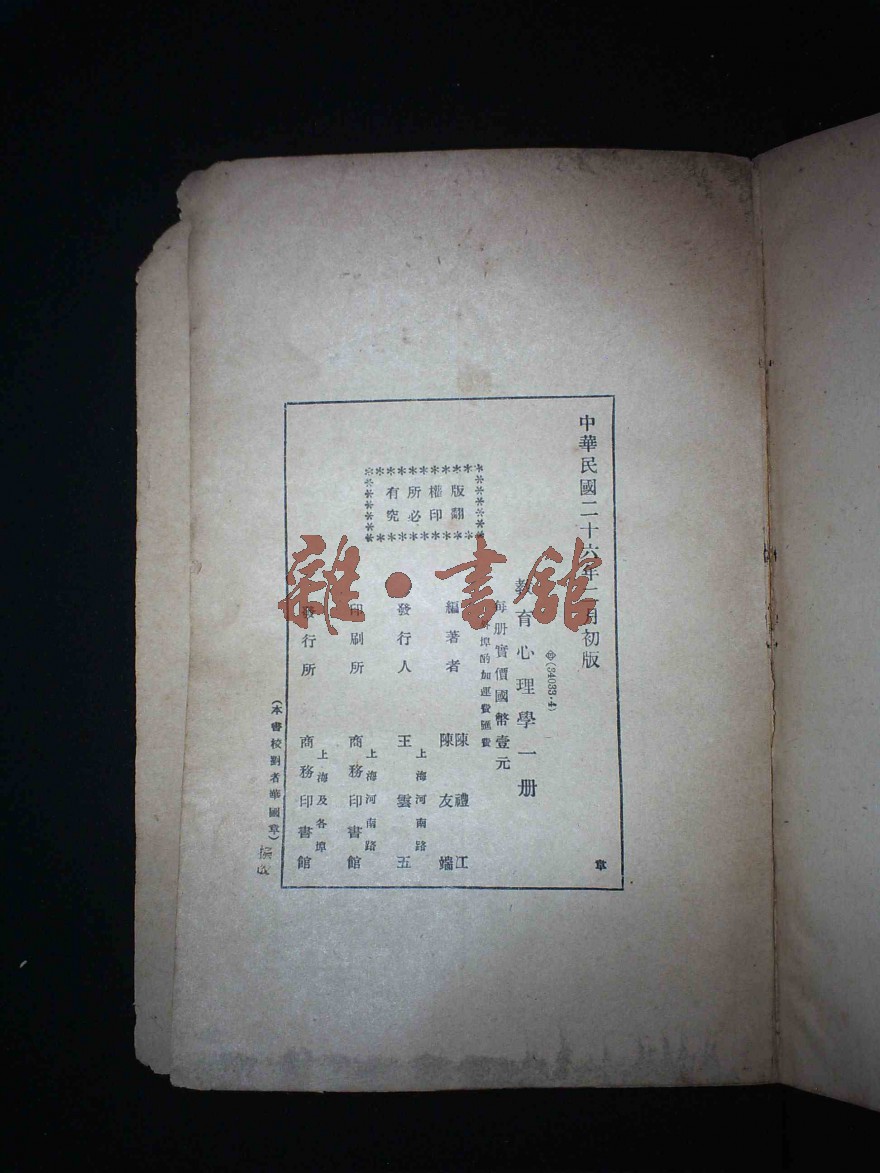 中華民國二十六年二月初版
(34033·4)
教育心理學一册
每册實價國幣壹元
外埠酌加運費匯費
版權所有
翻印必究
編著者 陳禮江 陳友端
發行人 王雲五
上海河南路
印刷所 商務印書館
上海河南路
發行所 商務印書館
上海及各埠
(本書校對者華國章)
章
雜·書館